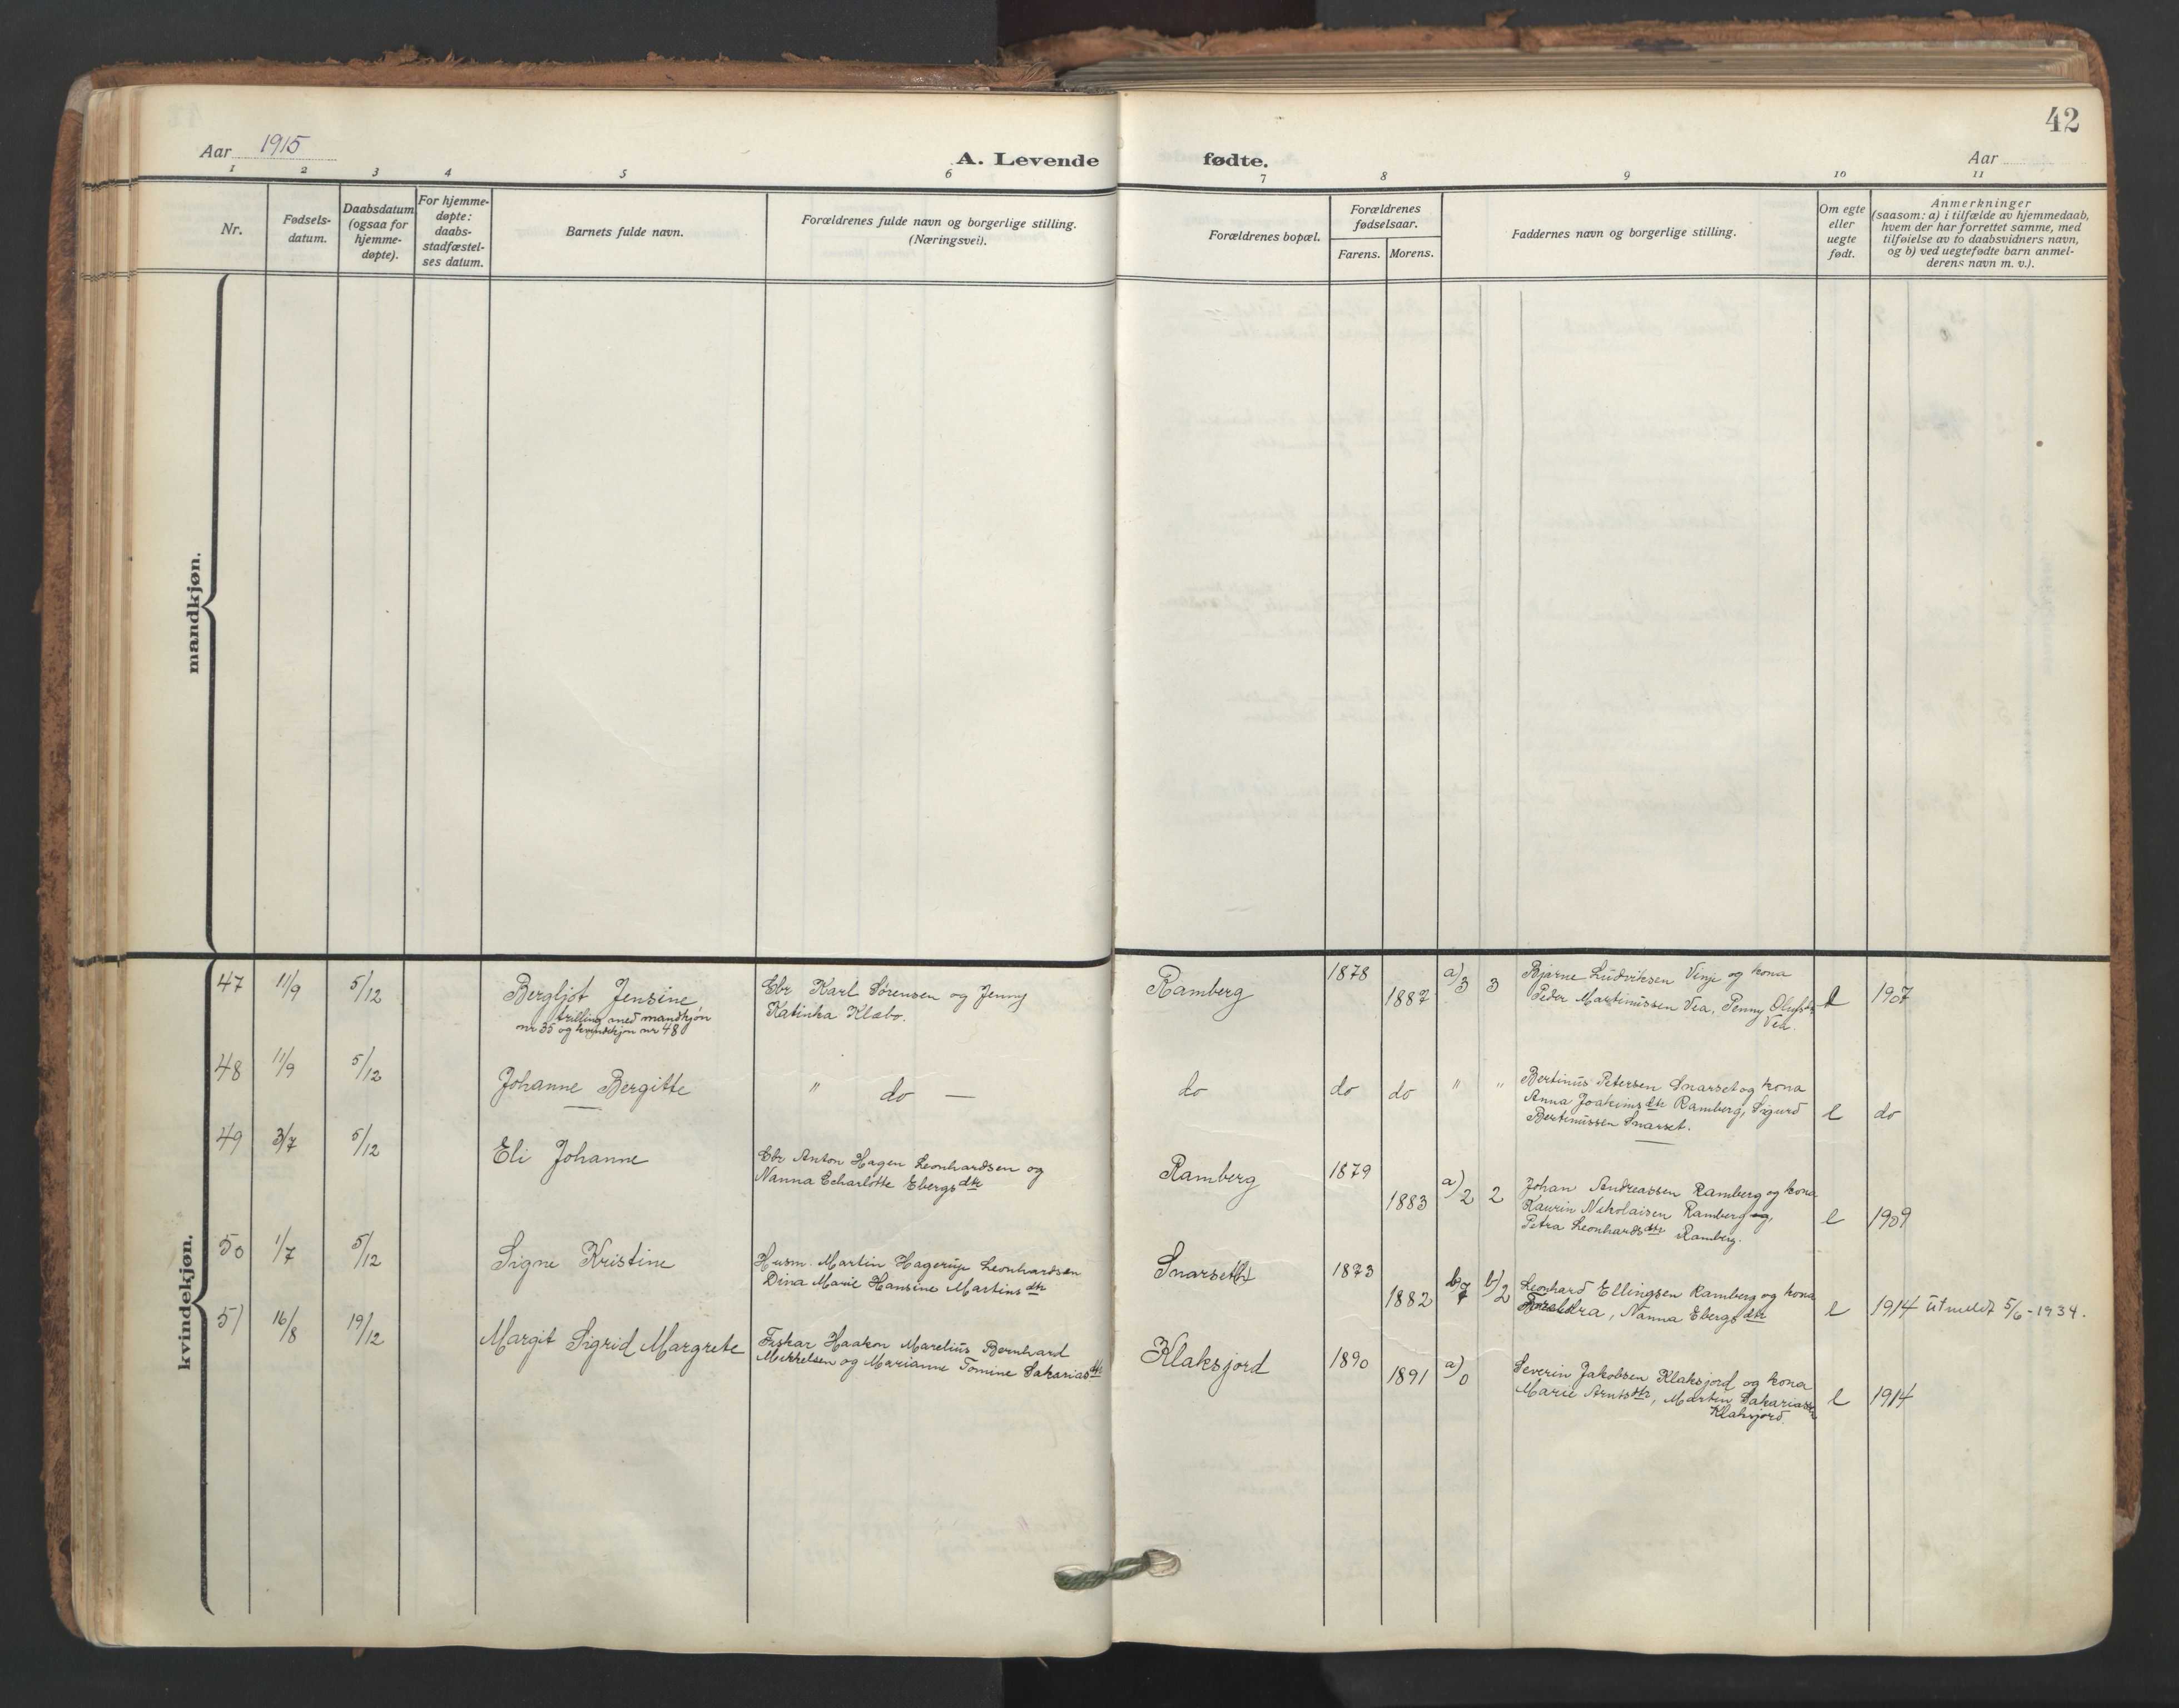 42
Aar 1915
A. Levende fødte.
Aar
1 2 3 4 5 6 7 8 9 10 11
Nr.
Fødsels-
datum.
Daabsdatum
(ogsaa for
hjemme-
døpte).
For hjemme-
døpte:
daabs-
stadfæstel-
ses datum.
Barnets fulde navn.
Forældrenes fulde navn og borgerlige stilling.
(Næringsvei).
Forældrenes bopæl.
Forældrenes
fødselsaar.
Farens. Morens.
Faddernes navn og borgerlige stilling.
Om egte
eller
uegte
født.
Anmerkninger
(saasom: a) i tilfælde av hjemmedaab,
hvem der har forrettet samme, med
tilføielse av to daabsvidners navn,
og b) ved uegtefødte barn anmel-
derens navn m. v.).
mandkjøn.
kvindekjøn.
47 11/9 5/12
Bergljot Jensine
trilling med mandkjøn
nr 35 og kvindekjøn nr 48
Gbr Karl Sørensen og Jenny
Katinka Klæbo.
Ramberg
1878
1887
a)3 3
Bjarne Ludviksen Vinje og kona
Peder Martinussen Vea, Penny Olufsdtr
Vea.
e 1907
48 11/9 5/12
Johanne Bergitte
" do —
do do do " "
Bertinus Petersen Snarset og kona
Anna Joakimsdtr Ramberg, Sigurd
Bertinussen Snarset.
e do
49 3/7 5/12
Eli Johanne
Gbr Anton Hagen Leonhardsen og
Nanna Charlotte Ebergsdtr
Ramberg
1879
1883
a)2 2
Johan Andreassen Ramberg og kona
Kaurin Nikolaisen Ramberg og,
Petra Leonhardsdtr Ramberg.
e 1909
50 1/7 5/12
Signe Kristine
Husm. Martin Hagerup Leonhardsen
Dina Marie Hansine Martinsdtr
Snarset
1873
1882
b)7 b)2
Leonhard Ellingsen Ramberg og kona
Foreldra, Nanna Ebergsdtr
e 1914 utmeldt 5/6-1934.
51 16/8 19/12
Margit Sigrid Margrete
Fiskar Haakon Marelius Bernhard
Mikkelsen og Marianne Tomine Sakariasdtr
Klaksjord
1890
1891
a)0
Severin Jakobsen Klaksjord og kona
Marie Arntsdtr, Martin Sakariassen
Klaksjord.
e 1914